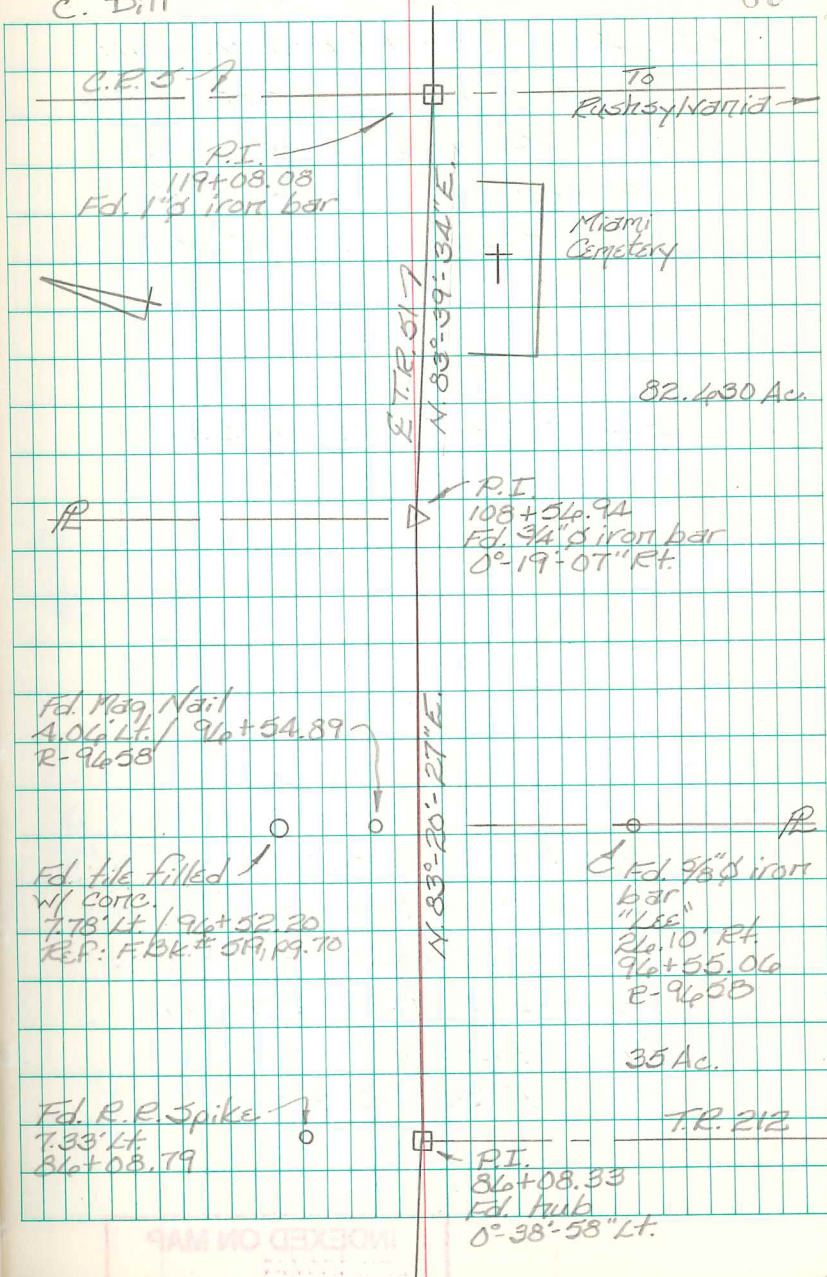 C. Dill
C.R. 5
To
Rushsylvania
P.I.
119+08.08
Fd. 1"ø iron bar
Miami
Cemetery
℄ T.R. 51
N. 83°-39'-34" E.
82.630 Ac.
P.I.
108+56.94
Fd. 3/4"ø iron bar
0°-19'-07" Rt.
℄
Fd. Mag Nail
4.06' Lt. / 96+54.89
R-9658
N. 83°-20'-27" E.
℄
Fd. tile filled
w/ conc.
7.78' Lt. / 96+52.20
Ref: F.BK.# 519, pg. 70
Fd. 5/8"ø iron
bar
"LEE"
26.10' Rt.
96+55.06
R-9658
35 Ac.
Fd. R.R. Spike
7.33' Lt.
86+08.79
T.R. 212
P.I.
86+08.33
Fd. hub
0°-38'-58" Lt.
INDEXED ON MAP